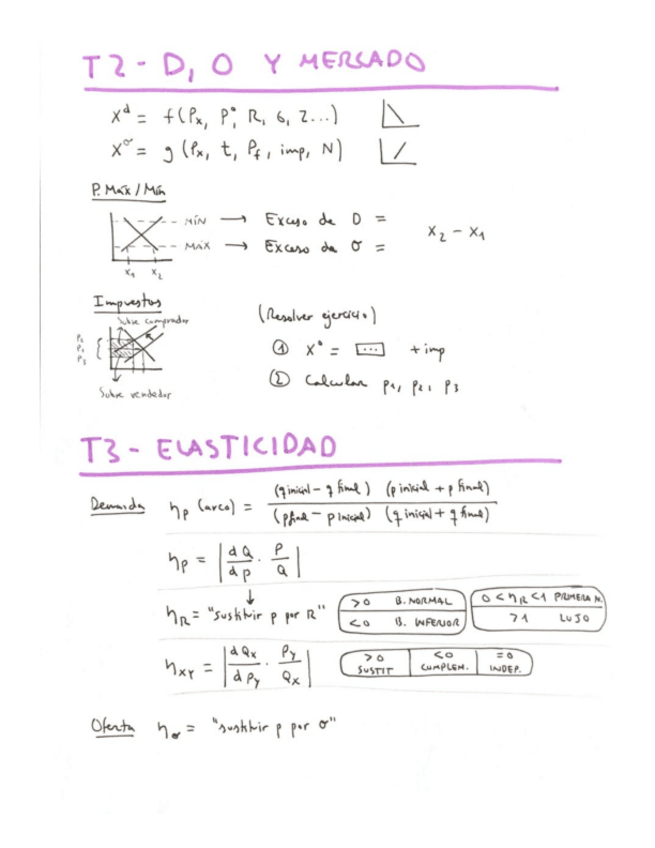 T2 - D, O Y MERCADO
X^d = f(Px, P°, R, G, Z...)
X^σ = g(Px, t, Pf, imp, N)
P. Max / Mín
MÍN → Exceso de D =
MÁX → Exceso de σ =
X2 - X1
X1 X2
Impuestos
Sobre comprador
P2
P1
P3
Sobre vendedor
(Resolver ejercicio)
① X° = [...] + imp
② Calcular P1, P2, P3
T3 - ELASTICIDAD
Demanda ηp (arco) = (q inicial - q final) (p inicial + p final)
(p final - p inicial) (q inicial + q final)
ηp = |dQ/dp · P/Q|
ηR = "sustituir p por R"
>0 B. NORMAL
<0 B. INFERIOR
0 < ηR < 1 PRIMERA N.
>1 LUJO
ηxy = |dQx/dPy · Py/Qx|
>0 SUSTIT
<0 COMPLEM.
=0 INDEP.
Oferta ησ = "sustituir p por σ"